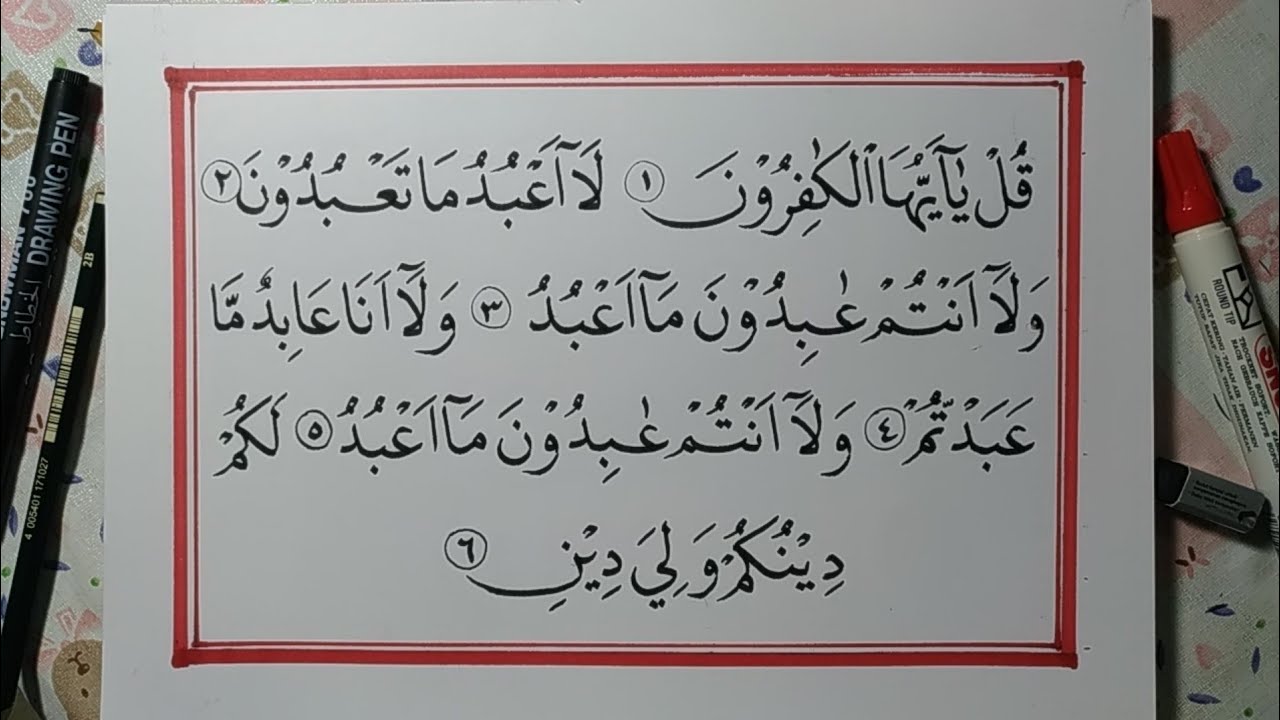 قُلْ يٰٓاَيُّهَا الْكٰفِرُوْنَ ١ لَآ اَعْبُدُ مَا تَعْبُدُوْنَ ٢
وَلَآ اَنْتُمْ عٰبِدُوْنَ مَآ اَعْبُدُ ٣ وَلَآ اَنَا۠ عَابِدٌ مَّا
عَبَدْتُّمْ ٤ وَلَآ اَنْتُمْ عٰبِدُوْنَ مَآ اَعْبُدُ ٥ لَكُمْ
دِيْنُكُمْ وَلِيَ دِيْنِ ٦
DRAWING PEN
الخطاط
2B
4 005401 171027
ROUND TIP